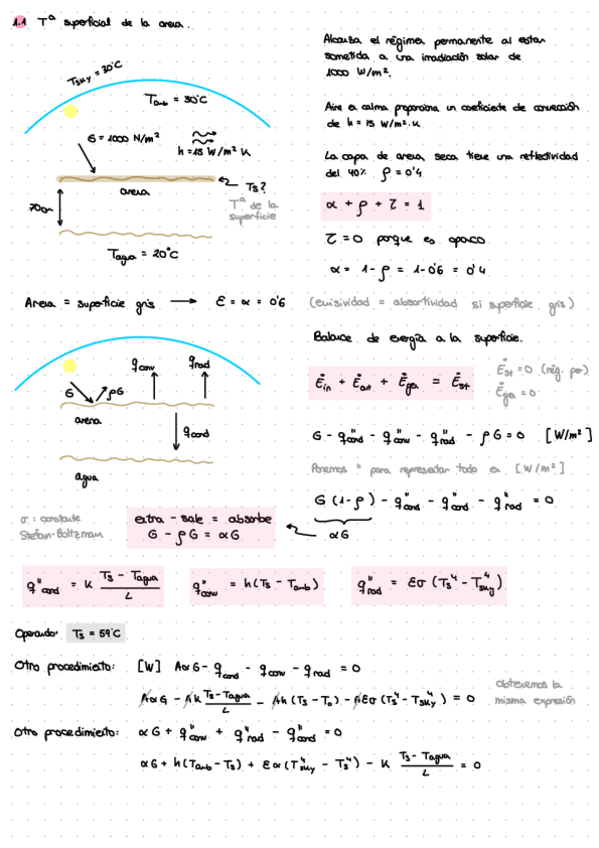 1.1 Tª superficial de la arena.
Alcanza el régimen permanente al estar
sometida a una irradiación solar de
1000 W/m².
Tsky = 30°C
Tamb = 30°C
Aire en calma proporciona un coeficiente de convección
de h = 15 W/m²·K
G = 1000 N/m²
h = 15 W/m² K
La capa de arena seca tiene una reflectividad
del 40% ρ = 0'4
arena
Ts?
Tª de la
superficie
α + ρ + τ = 1
τ = 0 porque es opaco
Tagua = 20°C
α = 1 - ρ = 1 - 0'6 = 0'4
Arena = superficie gris → ε = α = 0'6 (emisividad = absortividad si superficie gris)
Balance de energía a la superficie.
G ρG q conv q rad
Ėin + Ėout + Ėgen = Ėst
Ėst = 0 (rég. per.)
Ėgen = 0
arena
q cond
agua
G - q"cond - q"conv - q"rad - ρG = 0 [W/m²]
Ponemos " para representar todo en [W/m²]
G (1-ρ) - q"cond - q"conv - q"rad = 0
αG
σ: constante
Stefan-Boltzman
entra - sale = absorbe
G - ρG = αG
q"cond = K (Ts - Tagua)/L
q"conv = h (Ts - Tamb)
q"rad = εσ (Ts⁴ - Tsky⁴)
Operando: Ts = 59°C
Otro procedimiento: [W] AαG - q cond - q conv - q rad = 0
AαG - AK (Ts - Tagua)/L - Ah (Ts - T0) - Aεσ (Ts⁴ - Tsky⁴) = 0
Obtenemos la
misma expresión
Otro procedimiento: αG + q"conv + q"rad - q"cond = 0
αG + h (Tamb - Ts) + εα (Tsky⁴ - Ts⁴) - K (Ts - Tagua)/L = 0